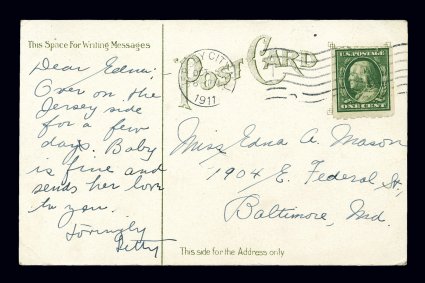 This Space For Writing Messages
POST CARD
Y CITY
1911
U.S. POSTAGE
ONE CENT
Dear Edna:-
Over on the
Jersey side
for a few
days. Baby
is fine and
sends her love
to you.
Lovingly
Betty
Miss Edna A. Mason
1904 E. Federal St.,
Baltimore, Md.
This side for the Address only